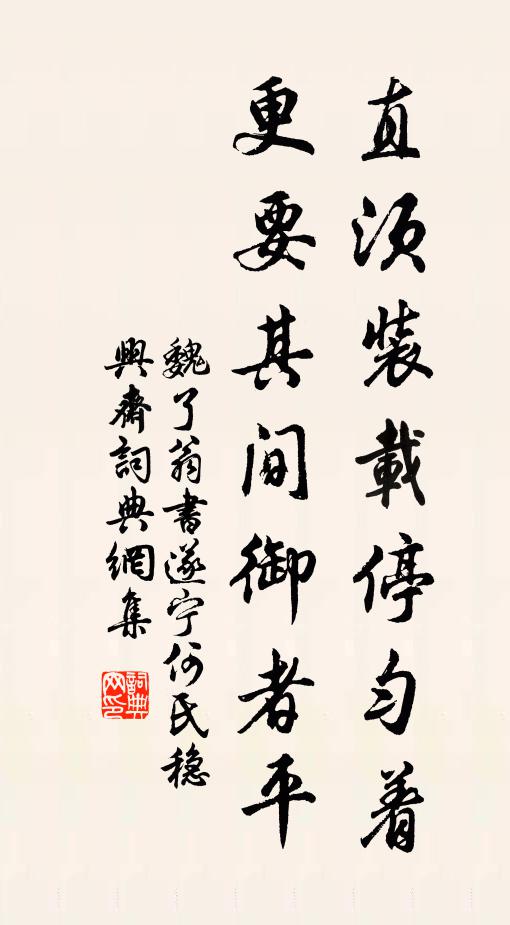 直須裝載停勻着
更要其間御者平
魏了翁書遂宁何氏穏
興齋詞典網集
詞典网印